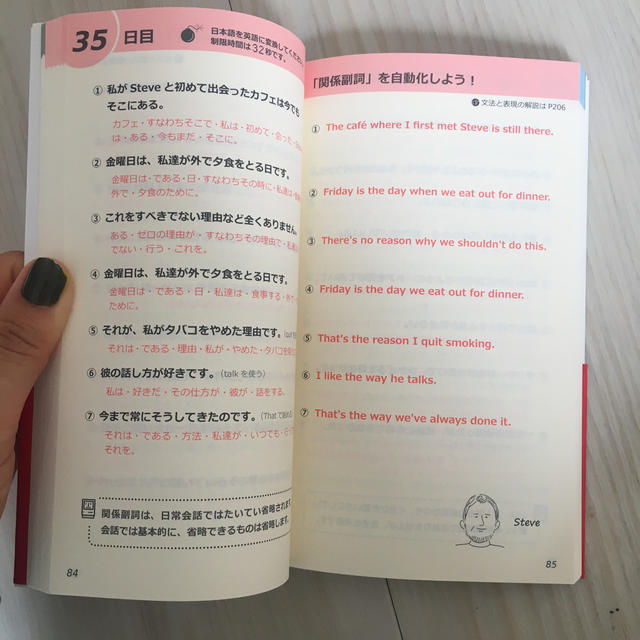 35 日目
日本語を英語に変換してください
制限時間は32秒です。
① 私がSteveと初めて出会ったカフェは今でも
そこにある。
カフェ・すなわちそこで・私は・初めて・会った・
は・ある・今もまだ・そこに。
② 金曜日は、私達が外で夕食をとる日です。
金曜日は・である・日・すなわちその時に・私達は・
外で・夕食のために。
③ これをすべきでない理由など全くありません。
ある・ゼロの理由が・すなわちその理由で・私達
でない・行う・これを。
④ 金曜日は、私達が外で夕食をとる日です。
金曜日は・である・日・私達は・食事する・外で・
ために。
⑤ それが、私がタバコをやめた理由です。
それは・である・理由・私が・やめた・タバコを
⑥ 彼の話し方が好きです。(talkを使う)
私は・好きだ・その仕方が・彼が・話をする。
⑦ 今まで常にそうしてきたのです。(Thatで
それは・である・方法・私達が・いつでも・
それを。
関係副詞は、日常会話ではたいてい省略されます
会話では基本的に、省略できるものは省略します。
84
「関係副詞」を自動化しよう！
文法と表現の解説は P206
① The café where I first met Steve is still there.
② Friday is the day when we eat out for dinner.
③ There's no reason why we shouldn't do this.
④ Friday is the day we eat out for dinner.
⑤ That's the reason I quit smoking.
⑥ I like the way he talks.
⑦ That's the way we've always done it.
Steve
85